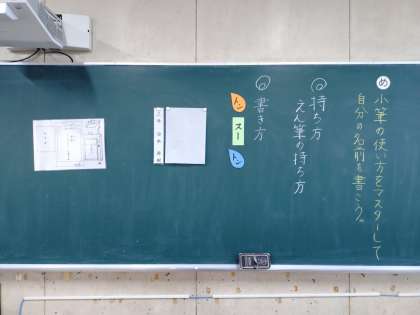 め 小筆の使い方をマスターして
自分の名前を書こう。
◎持ち方
えん筆の持ち方
◎書き方
トン
スー
トン